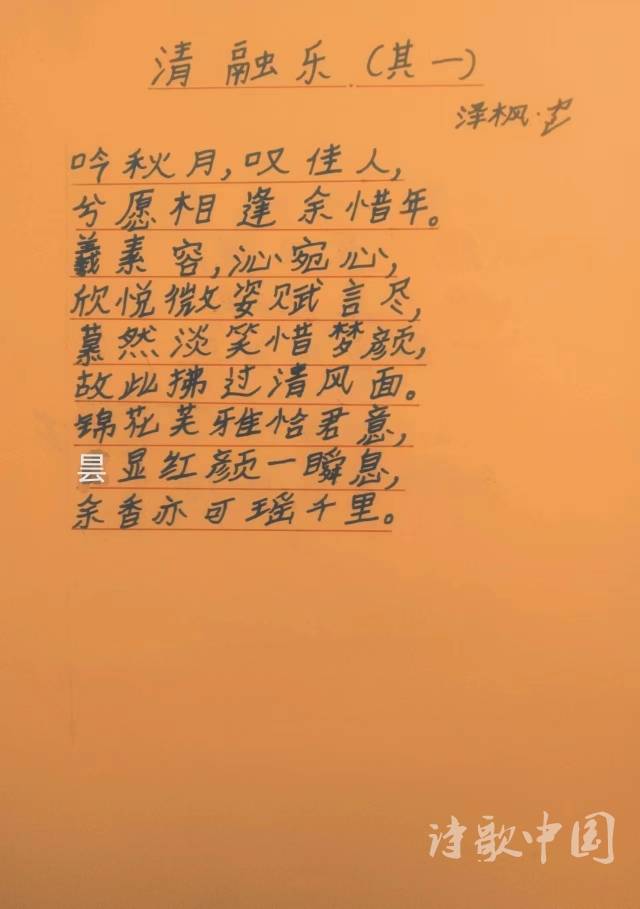 清融乐.(其一)
泽枫·
吟秋月,叹佳人,
兮愿相逢余惜年。
羲素容,沁宛心,
欣悦微姿赋言尽,
慕然淡笑惜梦颜,
故此拂过清风面。
锦花芙雅恰君意,
昙显红颜一瞬息,
余香亦可瑶千里。
诗歌中国